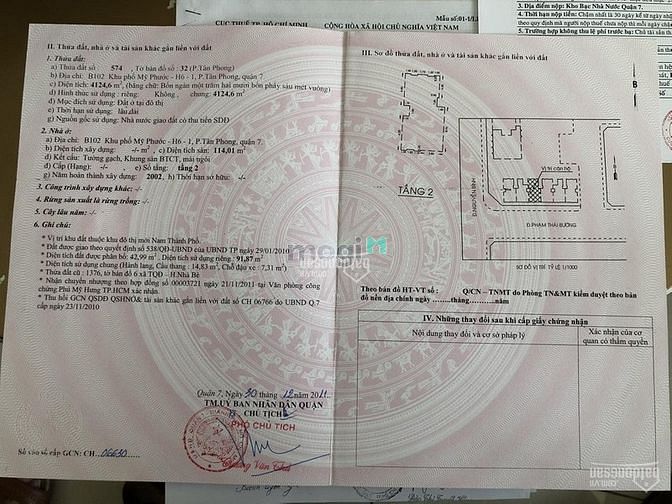 CỤC THUẾ TP. HỒ CHÍ MINH
CỘNG HÒA XÃ HỘI CHỦ NGHĨA VIỆT NAM
Mẫu số:01-1/L
3. Địa điểm nộp: Kho Bạc Nhà Nước Quận 7.
4. Thời hạn nộp tiền: Chậm nhất là 30 ngày kể từ ngày
5. Trường hợp không thu lệ phí trước bạ:
II. Thửa đất, nhà ở và tài sản khác gắn liền với đất
1. Thửa đất:
a) Thửa đất số : 574 , Tờ bản đồ số : 32 (P.Tân Phong)
b) Địa chỉ: B102 Khu phố Mỹ Phước - H6 - 1, P.Tân Phong, quận 7.
c) Diện tích: 4124,6 m², (bằng chữ: Bốn ngàn một trăm hai mươi bốn phẩy sáu mét vuông)
d) Hình thức sử dụng: riêng: Không , chung: 4124,6 m²
đ) Mục đích sử dụng: Đất ở tại đô thị
e) Thời hạn sử dụng: lâu dài
g) Nguồn gốc sử dụng: Nhà nước giao đất có thu tiền SDĐ
2. Nhà ở:
a) Địa chỉ: B102 Khu phố Mỹ Phước - H6 - 1, P.Tân Phong, quận 7.
b) Diện tích xây dựng: -/- m² c) Diện tích sàn: 114,01 m²
d) Kết cấu: Tường gạch, Khung sàn BTCT, mái ngói
đ) Cấp (Hạng): -/- e) Số tầng: tầng 2
g) Năm hoàn thành xây dựng: 2002 h) Thời hạn sở hữu: -/-
3. Công trình xây dựng khác: -/-
4. Rừng sản xuất là rừng trồng: -/-
5. Cây lâu năm: -/-
6. Ghi chú:
* Vị trí khu đất thuộc khu đô thị mới Nam Thành Phố.
* Đất được giao theo quyết định số 538/QĐ-UBND của UBND TP ngày 29/01/2010
* Diện tích đất được phân bổ: 42,99 m², Diện tích sử dụng riêng: 91,87 m²
* Diện tích sử dụng chung (Hành lang, Cầu thang: 14,83 m², Chỗ đậu xe: 7,31 m²)
* Thửa đất cũ : 1376, tờ bản đồ 6 xã TQĐ - H.Nhà Bè
* Nhận chuyển nhượng theo hợp đồng số 00003721 ngày 21/11/2011 tại Văn phòng công
chứng Phú Mỹ Hưng TP.HCM xác nhận.
* Thu hồi GCN QSDĐ QSHNƠ& tài sản khác gắn liền với đất số CH 06766 do UBND Q.7
cấp ngày 23/11/2010
Quận 7, Ngày 30 tháng 12 năm 2011
TM.ỦY BAN NHÂN DÂN QUẬN
CHỦ TỊCH
PHÓ CHỦ TỊCH
Số vào sổ cấp GCN: CH 06630
III. Sơ đồ thửa đất, nhà ở và tài sản khác gắn liền với đất
B
TẦNG 2
Vị trí căn hộ
Đ.PHẠM THÁI BƯỜNG
SƠ ĐỒ VỊ TRÍ TỶ LỆ 1/1000
Theo bản đồ HT-VT số
do Phòng TN&MT kiểm duyệt theo bản
đồ nền địa chính ngày......tháng......năm
Q/CN – TNMT
IV. Những thay đổi sau khi cấp giấy chứng nhận
Nội dung thay đổi và cơ sở pháp lý
Xác nhận của cơ
quan có thẩm quyền
meeyM
batdongsan